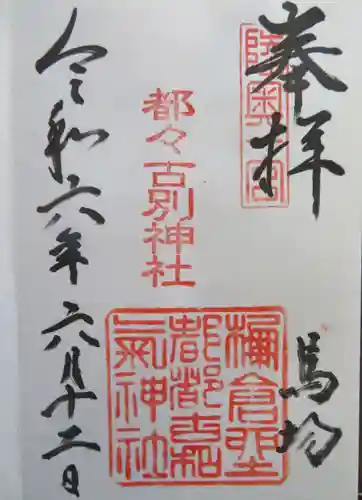 奉拝
陸奥一宮
馬場
都々古別神社
棚倉坐
都都古和
氣神社
令和六年六月十二日